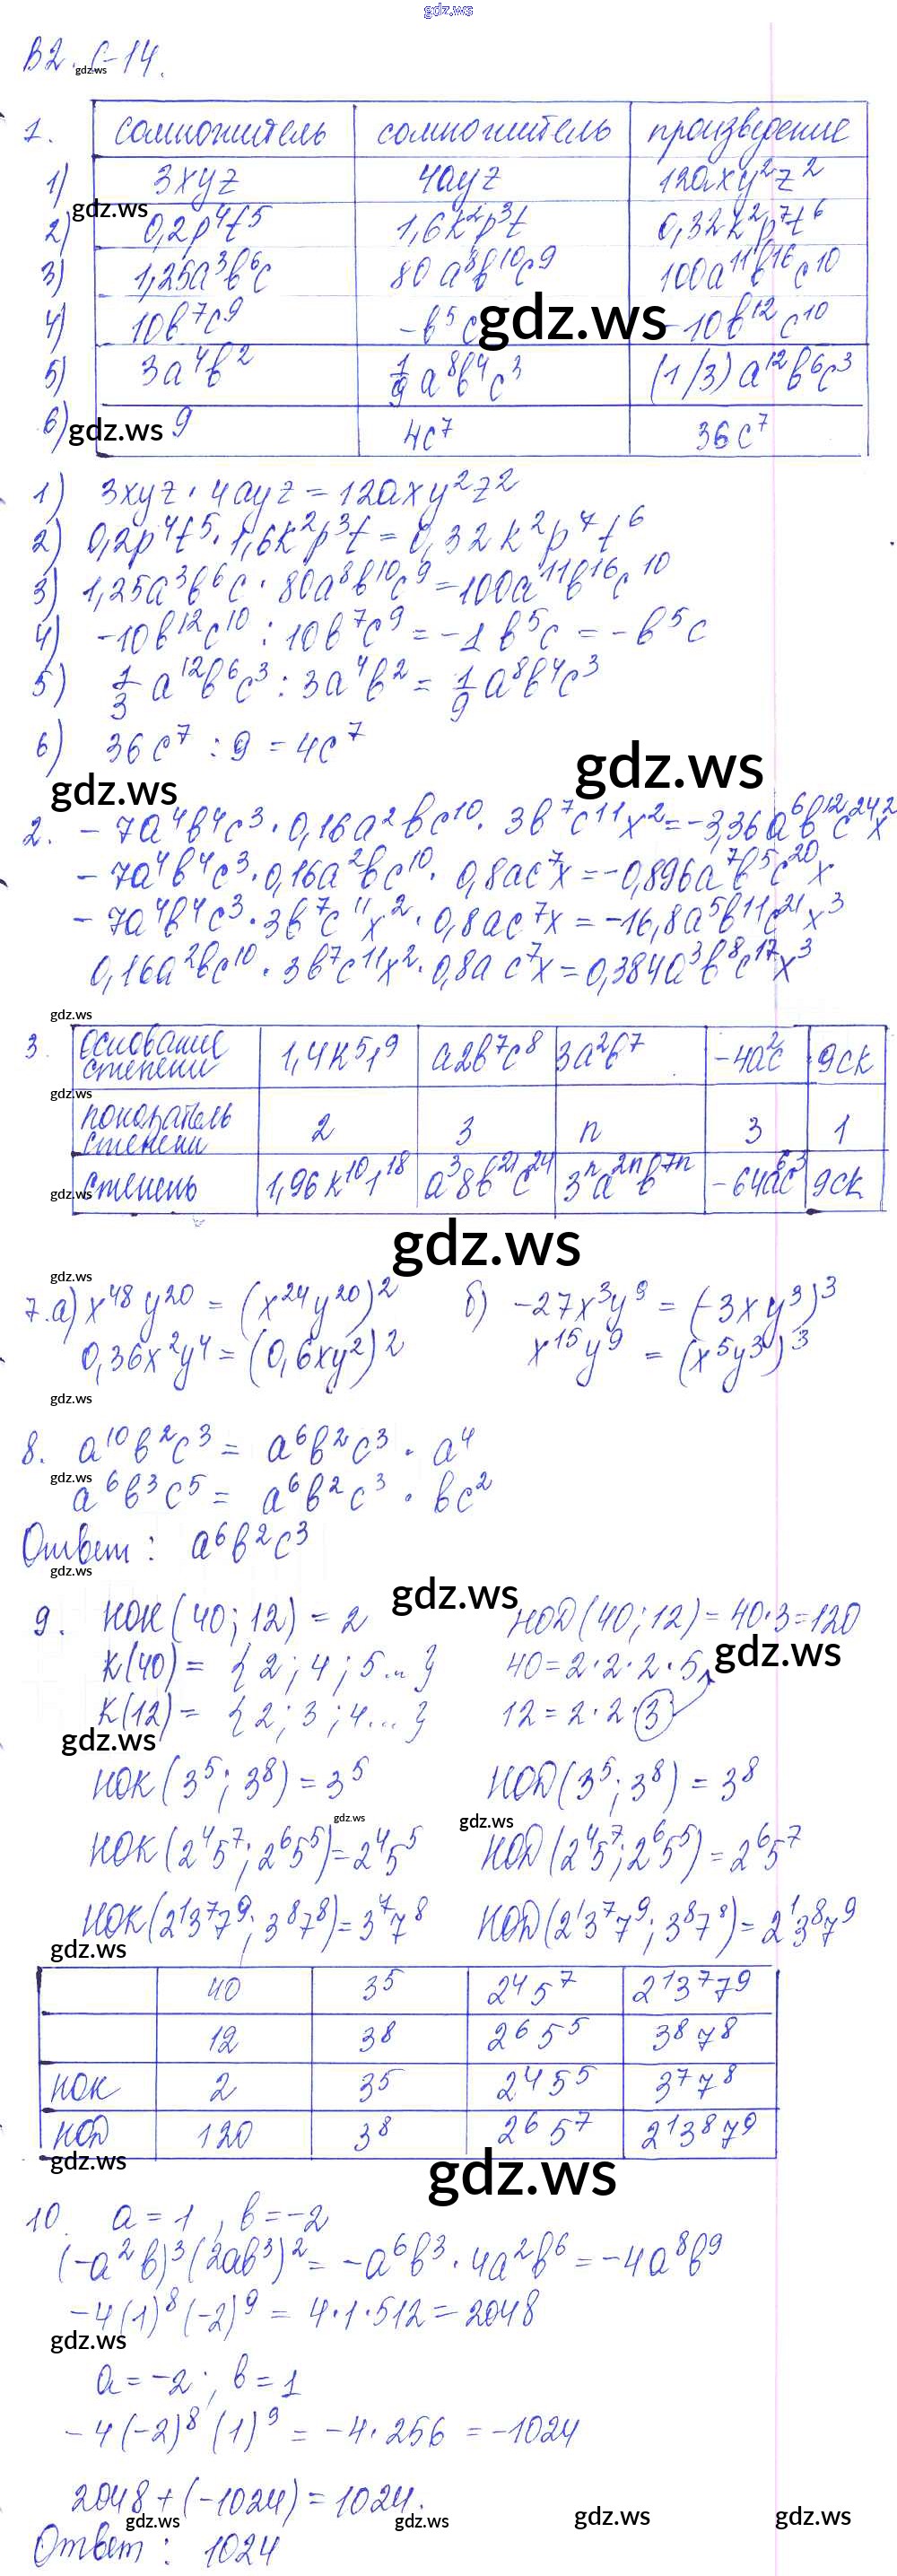 gdz.ws
В2. С-14.
gdz.ws
1. сомножитель сомножитель произведение
1) 3xyz 4ayz 12axy²z²
gdz.ws
2) 0,2p⁴t⁵ 1,6k²p³t 0,32k²p⁷t⁶
3) 1,25a³b⁶c 80a⁸b¹⁰c⁹ 100a¹¹b¹⁶c¹⁰
4) 10b⁷c⁹ -b⁵c -10b¹²c¹⁰
gdz.ws
5) 3a⁴b² 1/9 a⁸b⁴c³ (1/3)a¹²b⁶c³
6) 9 4c⁷ 36c⁷
gdz.ws
1) 3xyz · 4ayz = 12axy²z²
2) 0,2p⁴t⁵ · 1,6k²p³t = 0,32k²p⁷t⁶
3) 1,25a³b⁶c · 80a⁸b¹⁰c⁹ = 100a¹¹b¹⁶c¹⁰
4) -10b¹²c¹⁰ : 10b⁷c⁹ = -1b⁵c = -b⁵c
5) 1/3 a¹²b⁶c³ : 3a⁴b² = 1/9 a⁸b⁴c³
6) 36c⁷ : 9 = 4c⁷
gdz.ws
gdz.ws
2. -7a⁴b⁴c³ · 0,16a²bc¹⁰ · 3b⁷c¹¹x² = -3,36a⁶b¹²c²⁴x²
-7a⁴b⁴c³ · 0,16a²bc¹⁰ · 0,8ac⁷x = -0,896a⁷b⁵c²⁰x
-7a⁴b⁴c³ · 3b⁷c¹¹x² · 0,8ac⁷x = -16,8a⁵b¹¹c²¹x³
0,16a²bc¹⁰ · 3b⁷c¹¹x² · 0,8ac⁷x = 0,384a³b⁸c¹⁷x³
gdz.ws
3. основание степени 1,4k⁵1⁹ a2b⁷c⁸ 3a²b⁷ -4a²c 9ck
gdz.ws
показатель степени 2 3 n 3 1
gdz.ws
степень 1,96k¹⁰1¹⁸ a³8b²¹c²⁴ 3ⁿa²ⁿb⁷ⁿ -64a⁶c³ 9ck
gdz.ws
gdz.ws
7. а) x⁴⁸y²⁰ = (x²⁴y²⁰)² б) -27x³y⁹ = (-3xy³)³
0,36x²y⁴ = (0,6xy²)² x¹⁵y⁹ = (x⁵y³)³
gdz.ws
8. a¹⁰b²c³ = a⁶b²c³ · a⁴
gdz.ws
a⁶b³c⁵ = a⁶b²c³ · bc²
Ответ: a⁶b²c³
gdz.ws
gdz.ws
9. НОК(40;12) = 2 НОД(40;12) = 40·3=120
gdz.ws
К(40) = {2; 4; 5...} 40 = 2·2·2·5
К(12) = {2; 3; 4...} 12 = 2·2·3
gdz.ws
НОК(3⁵; 3⁸) = 3⁵ НОД(3⁵; 3⁸) = 3⁸
gdz.ws gdz.ws
НОК(2⁴5⁷; 2⁶5⁵) = 2⁴5⁵ НОД(2⁴5⁷; 2⁶5⁵) = 2⁶5⁷
НОК(2¹3⁷7⁹; 3⁸7⁸) = 3⁷7⁸ НОД(2¹3⁷7⁹; 3⁸7⁸) = 2¹3⁸7⁹
gdz.ws
40 3⁵ 2⁴5⁷ 2¹3⁷7⁹
12 3⁸ 2⁶5⁵ 3⁸7⁸
НОК 2 3⁵ 2⁴5⁵ 3⁷7⁸
НОД 120 3⁸ 2⁶5⁷ 2¹3⁸7⁹
gdz.ws
gdz.ws
10. a = 1, b = -2
(-a²b)³(2ab³)² = -a⁶b³ · 4a²b⁶ = -4a⁸b⁹
-4(1)⁸(-2)⁹ = 4·1·512 = 2048
gdz.ws
a = -2; b = 1
-4(-2)⁸(1)⁹ = -4·256 = -1024
2048+(-1024)=1024.
gdz.ws gdz.ws gdz.ws gdz.ws
Ответ: 1024